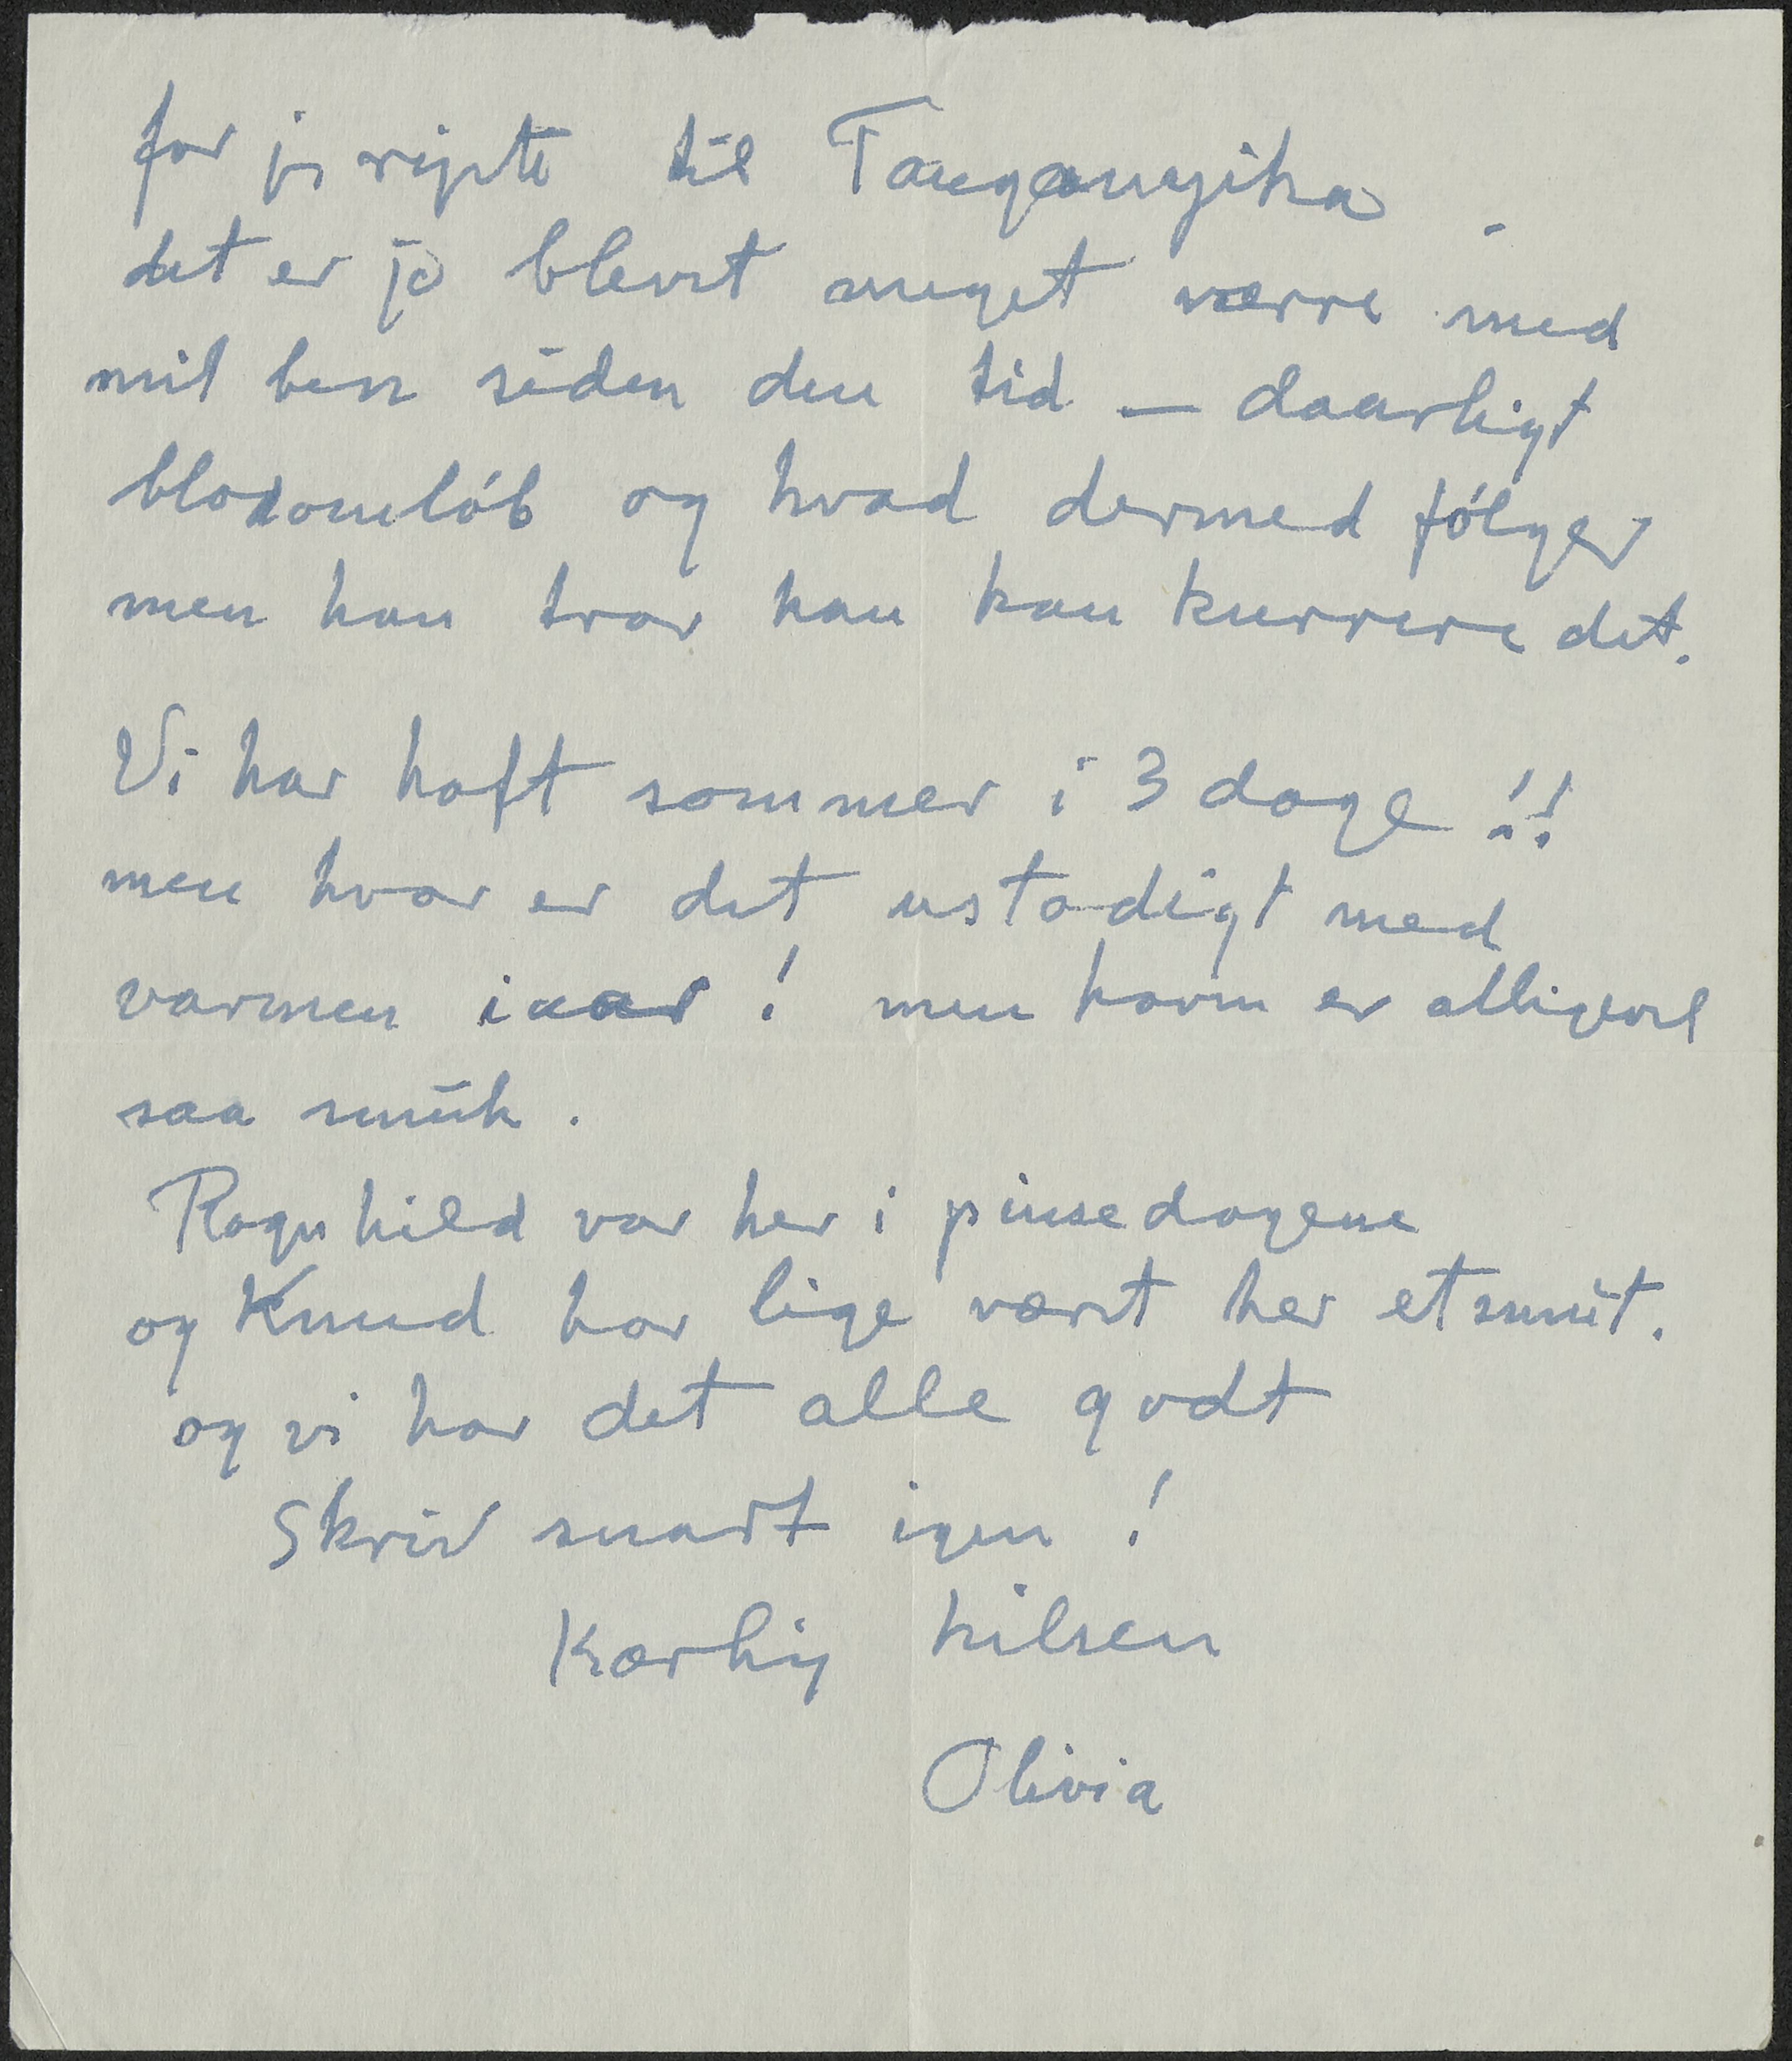 for jeg rejste til Tanganyika.
det er jo blevet meget værre med
mit ben siden den tid – daarligt
blodomløb og hvad dermed følger
men han tror han kan kurrere det.
Vi har haft sommer i 3 dage !!
men hvor er det ustadigt med
varmen iaar ! men haven er alligevel
saa smuk.
Ragnhild var her i pinsedagene
og Knud har lige været her et smut.
og vi har det alle godt
Skriv snart igen !
Kærlig hilsen
Olivia